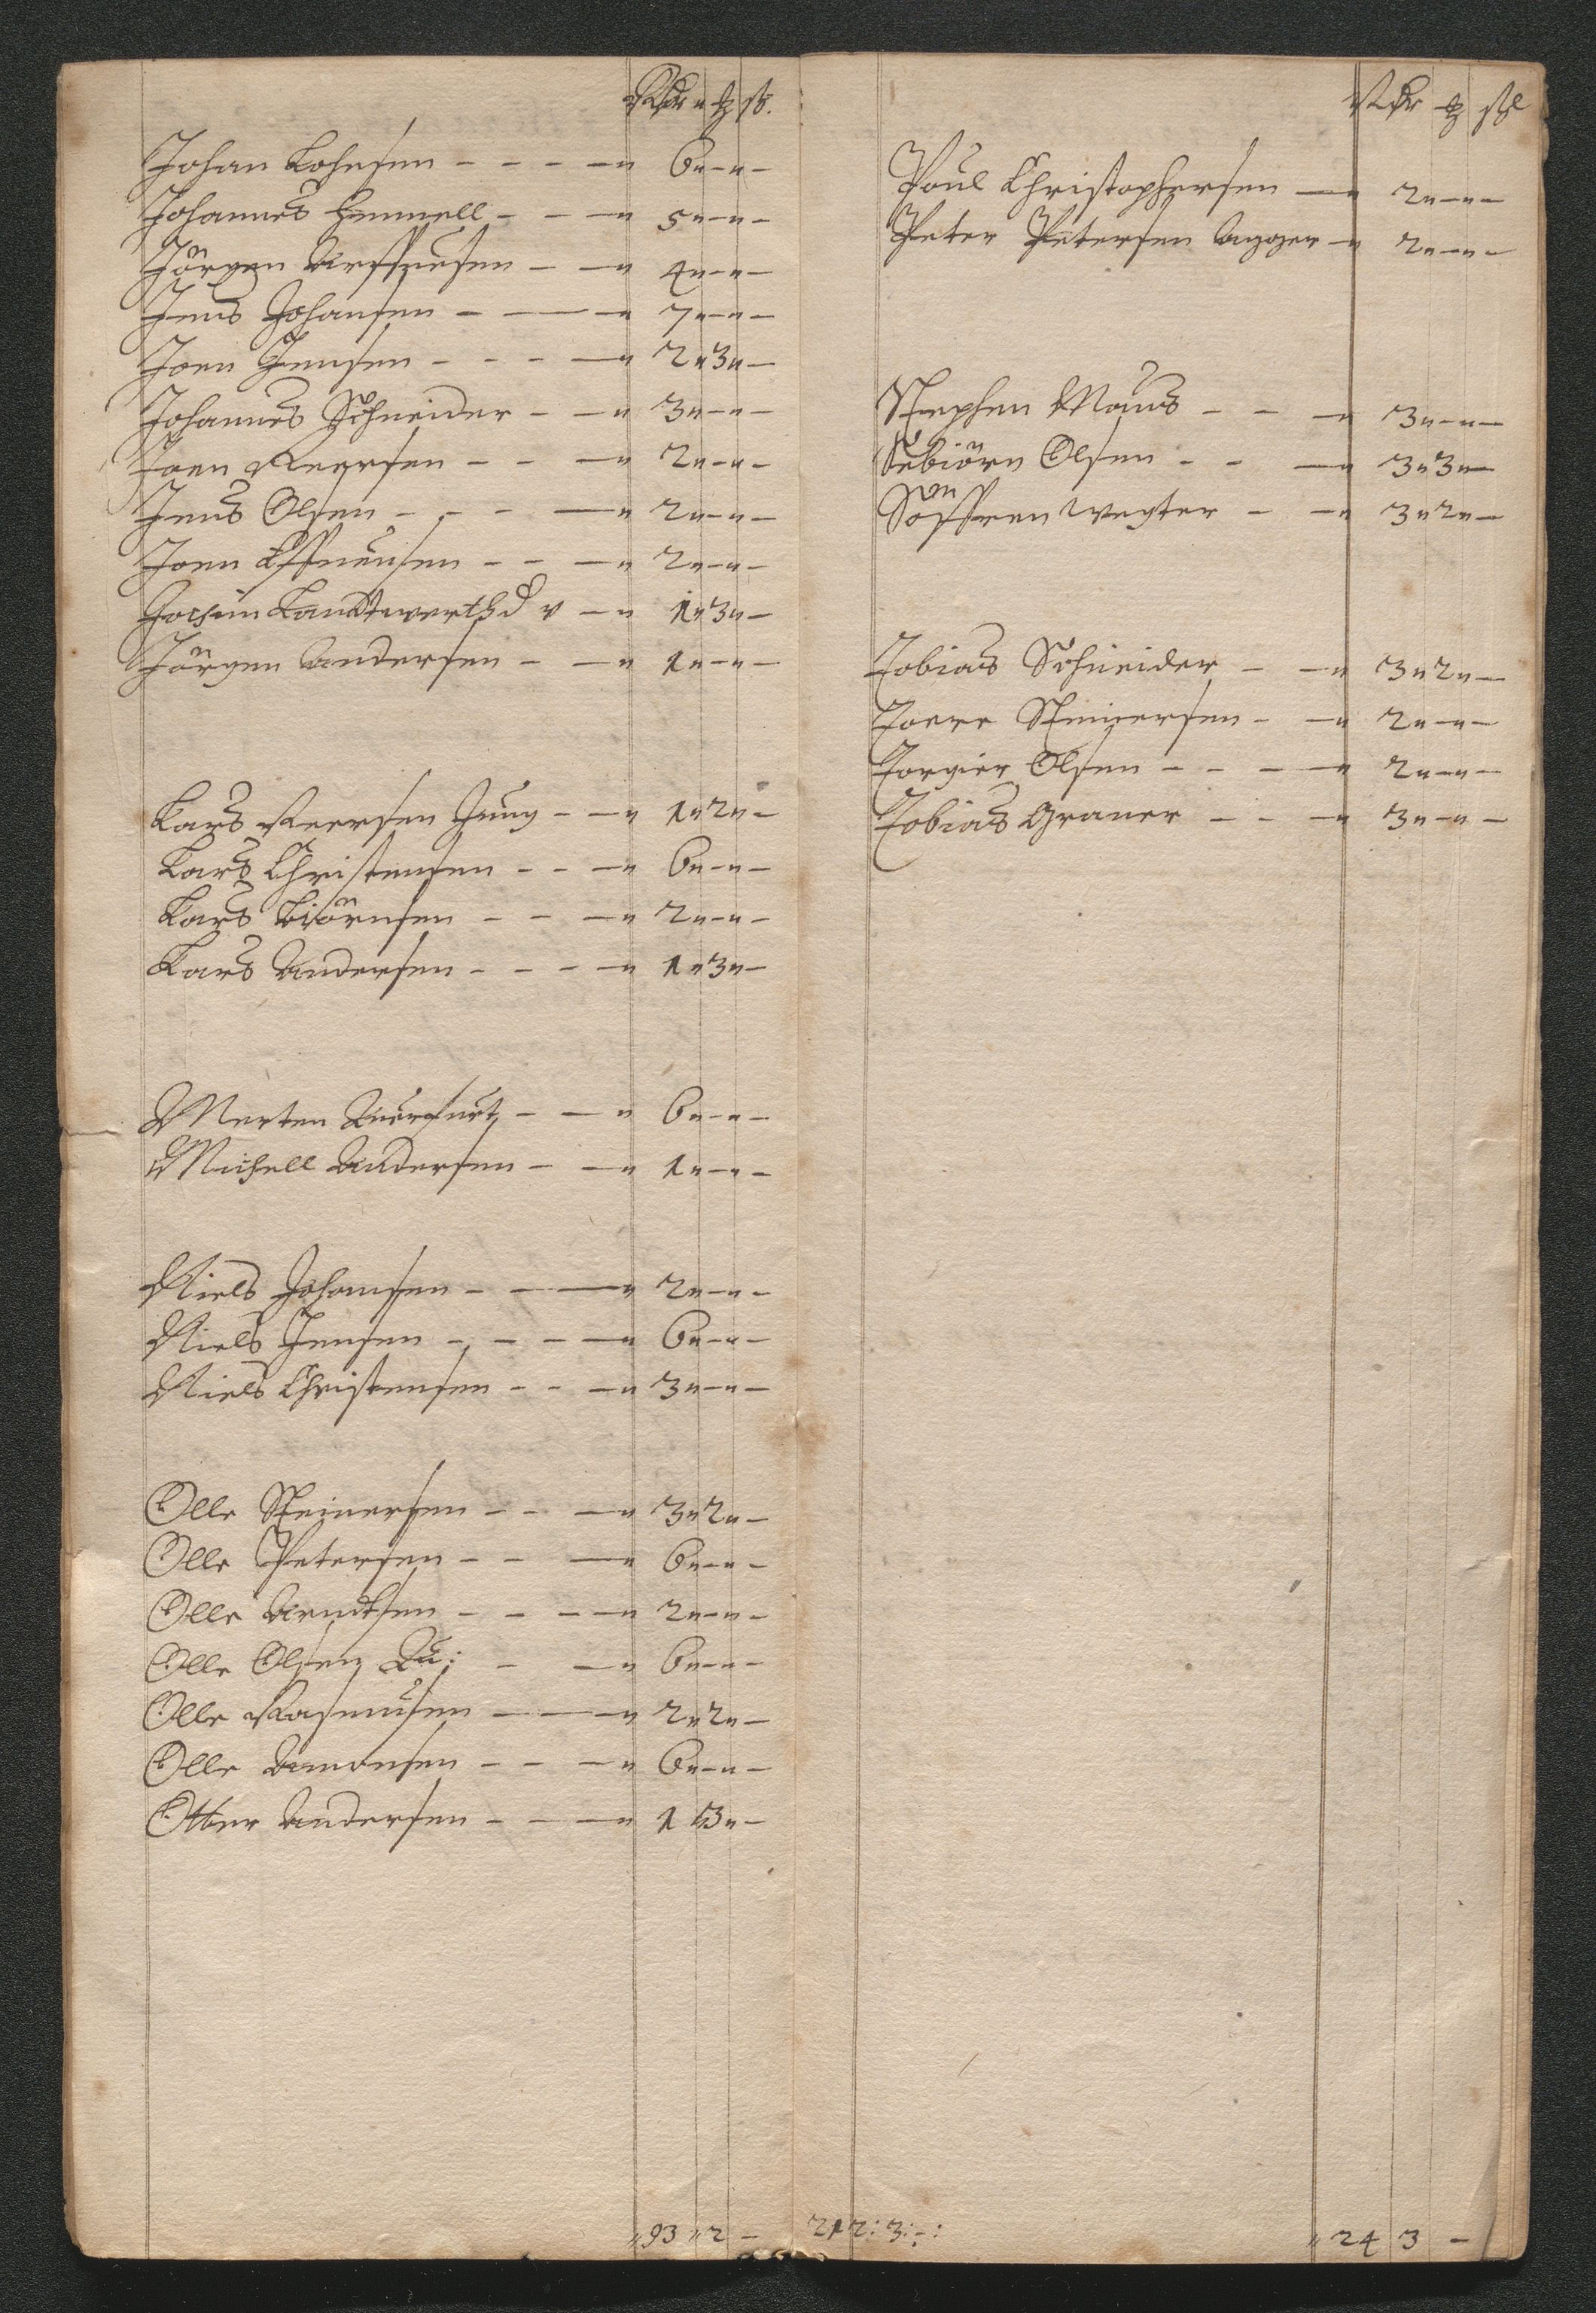 Rdr " ꝳ ß.
Johan Lohnsen - - - - " 6 " - " -
Johannes Hemmell - - - " 5 " - " -
Jörgen - - " 4 " - " -
Jens Johansen - - - " 7 " - " -
Joen Jensen - - - - " 2 " 3 " -
Johannes Schneider - - " 3 " - " -
Joen Reersen - - - " 2 " - " -
Jens Olsen - - - - " 2 " - " -
Joen - - - " 2 " - " -
Jochim - " 1 " 3 " -
Jörgen Andersen - - " 1 " - " -
Lars Reersen Jung - - " 1 " 2 " -
Lars Christensen - - - " 6 " - " -
Lars Biörnsen - - - " 2 " - " -
Lars Andersen - - - - " 1 " 3 " -
Merten Querfurt - - " 6 " - " -
Michell Andersen - - " 1 " - " -
Niels Johansen - - - " 2 " - " -
Niels Jensen - - - - " 6 " - " -
Niels Christensen - - - " 3 " - " -
Olle Steinersen - - - " 3 " 2 " -
Olle Petersen - - - " 6 " - " -
Olle Arndtsen - - - - " 2 " - " -
Olle Olsen Qu: - - " 6 " - " -
Olle Rasmusen - - - " 2 " 2 " -
Olle Amonsen - - - " 6 " - " -
Otter Andersen - - - " 1 " 3 " -
" 93 " 2 -
Rdr ꝳ ßl
Poul Christophersen - " 2 " - " -
Peter Petersen Agger - " 2 " - " -
Stephen Maus - - - " 3 " - " -
Sebiörn Olsen - - - " 3 " 3 " -
Söffren Wegter - - " 3 " 2 " -
Tobias Schneider - - " 3 " 2 " -
Toere Steinersen - - " 2 " - " -
Torgier Olsen - - - - " 2 " - " -
Tobias Graner - - - " 3 " - " -
212 : 3 : - :
" 24 3 -